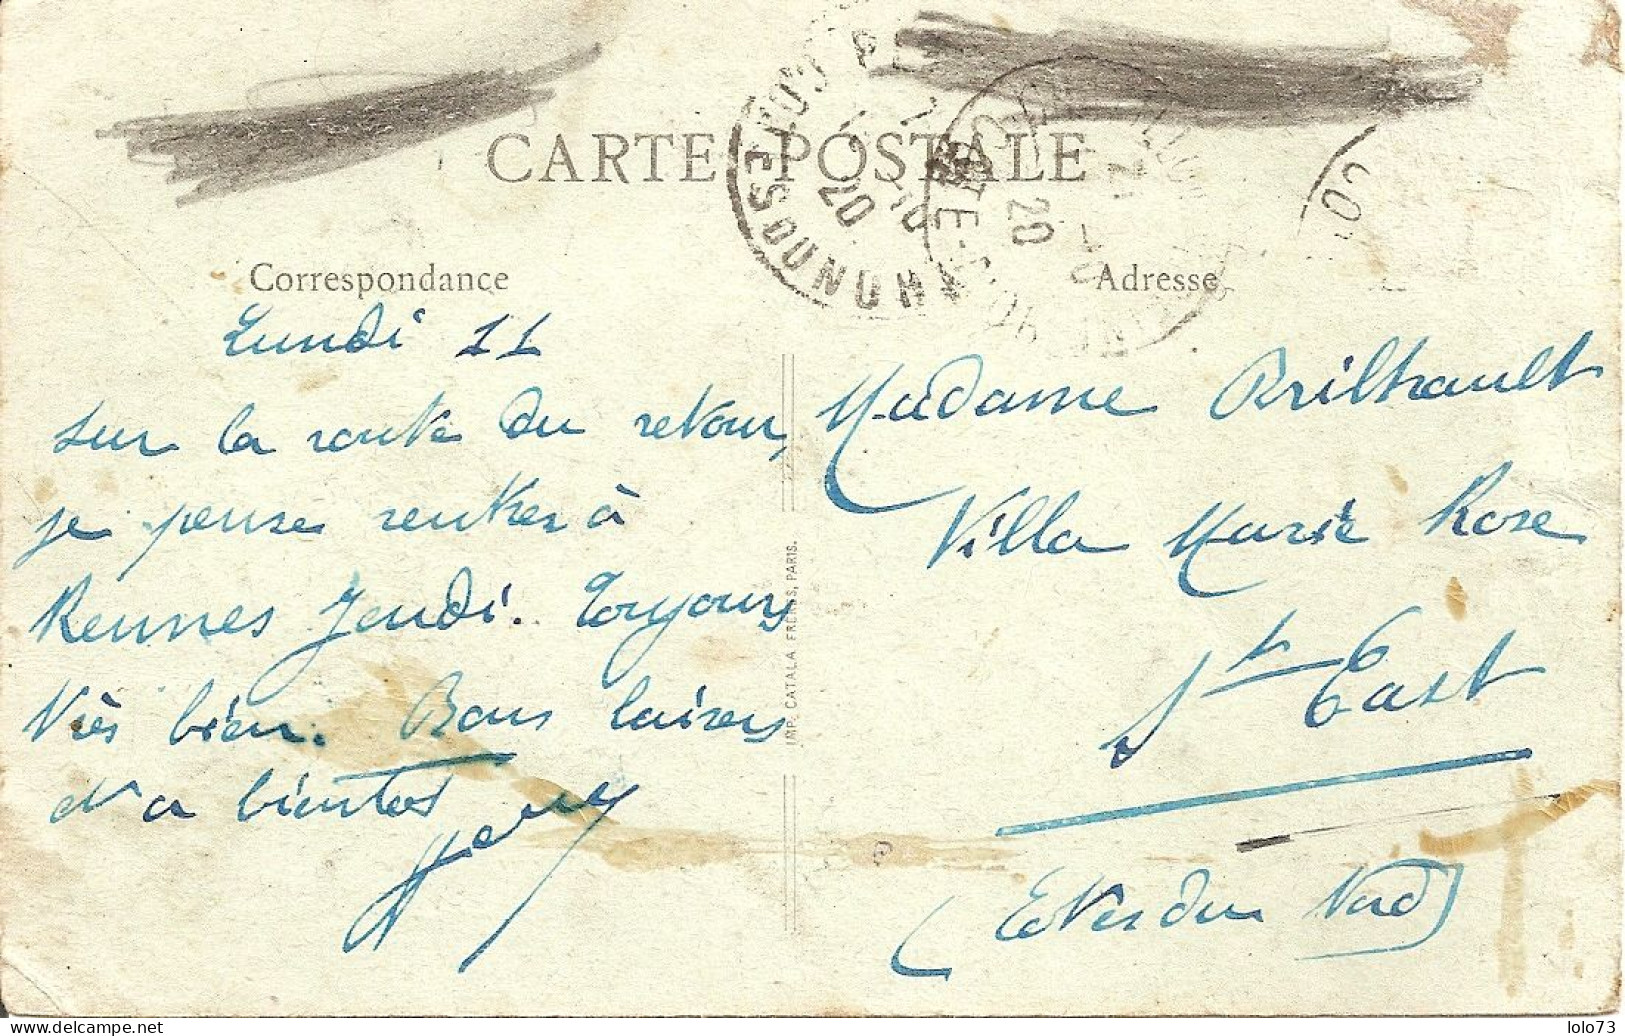 CARTE POSTALE
Correspondance
Lundi 11
Sur la route du retour,
je pense rentrer à
Rennes Jeudi. Toujours
très bien. Bons baisers
et a bientot
Adresse
Madame Brilhault
Villa Marie Rose
St Cast
(Côtes du Nord)
IMP. CATALA FRÈRES, PARIS.
20
20
delcampe.net
lolo73